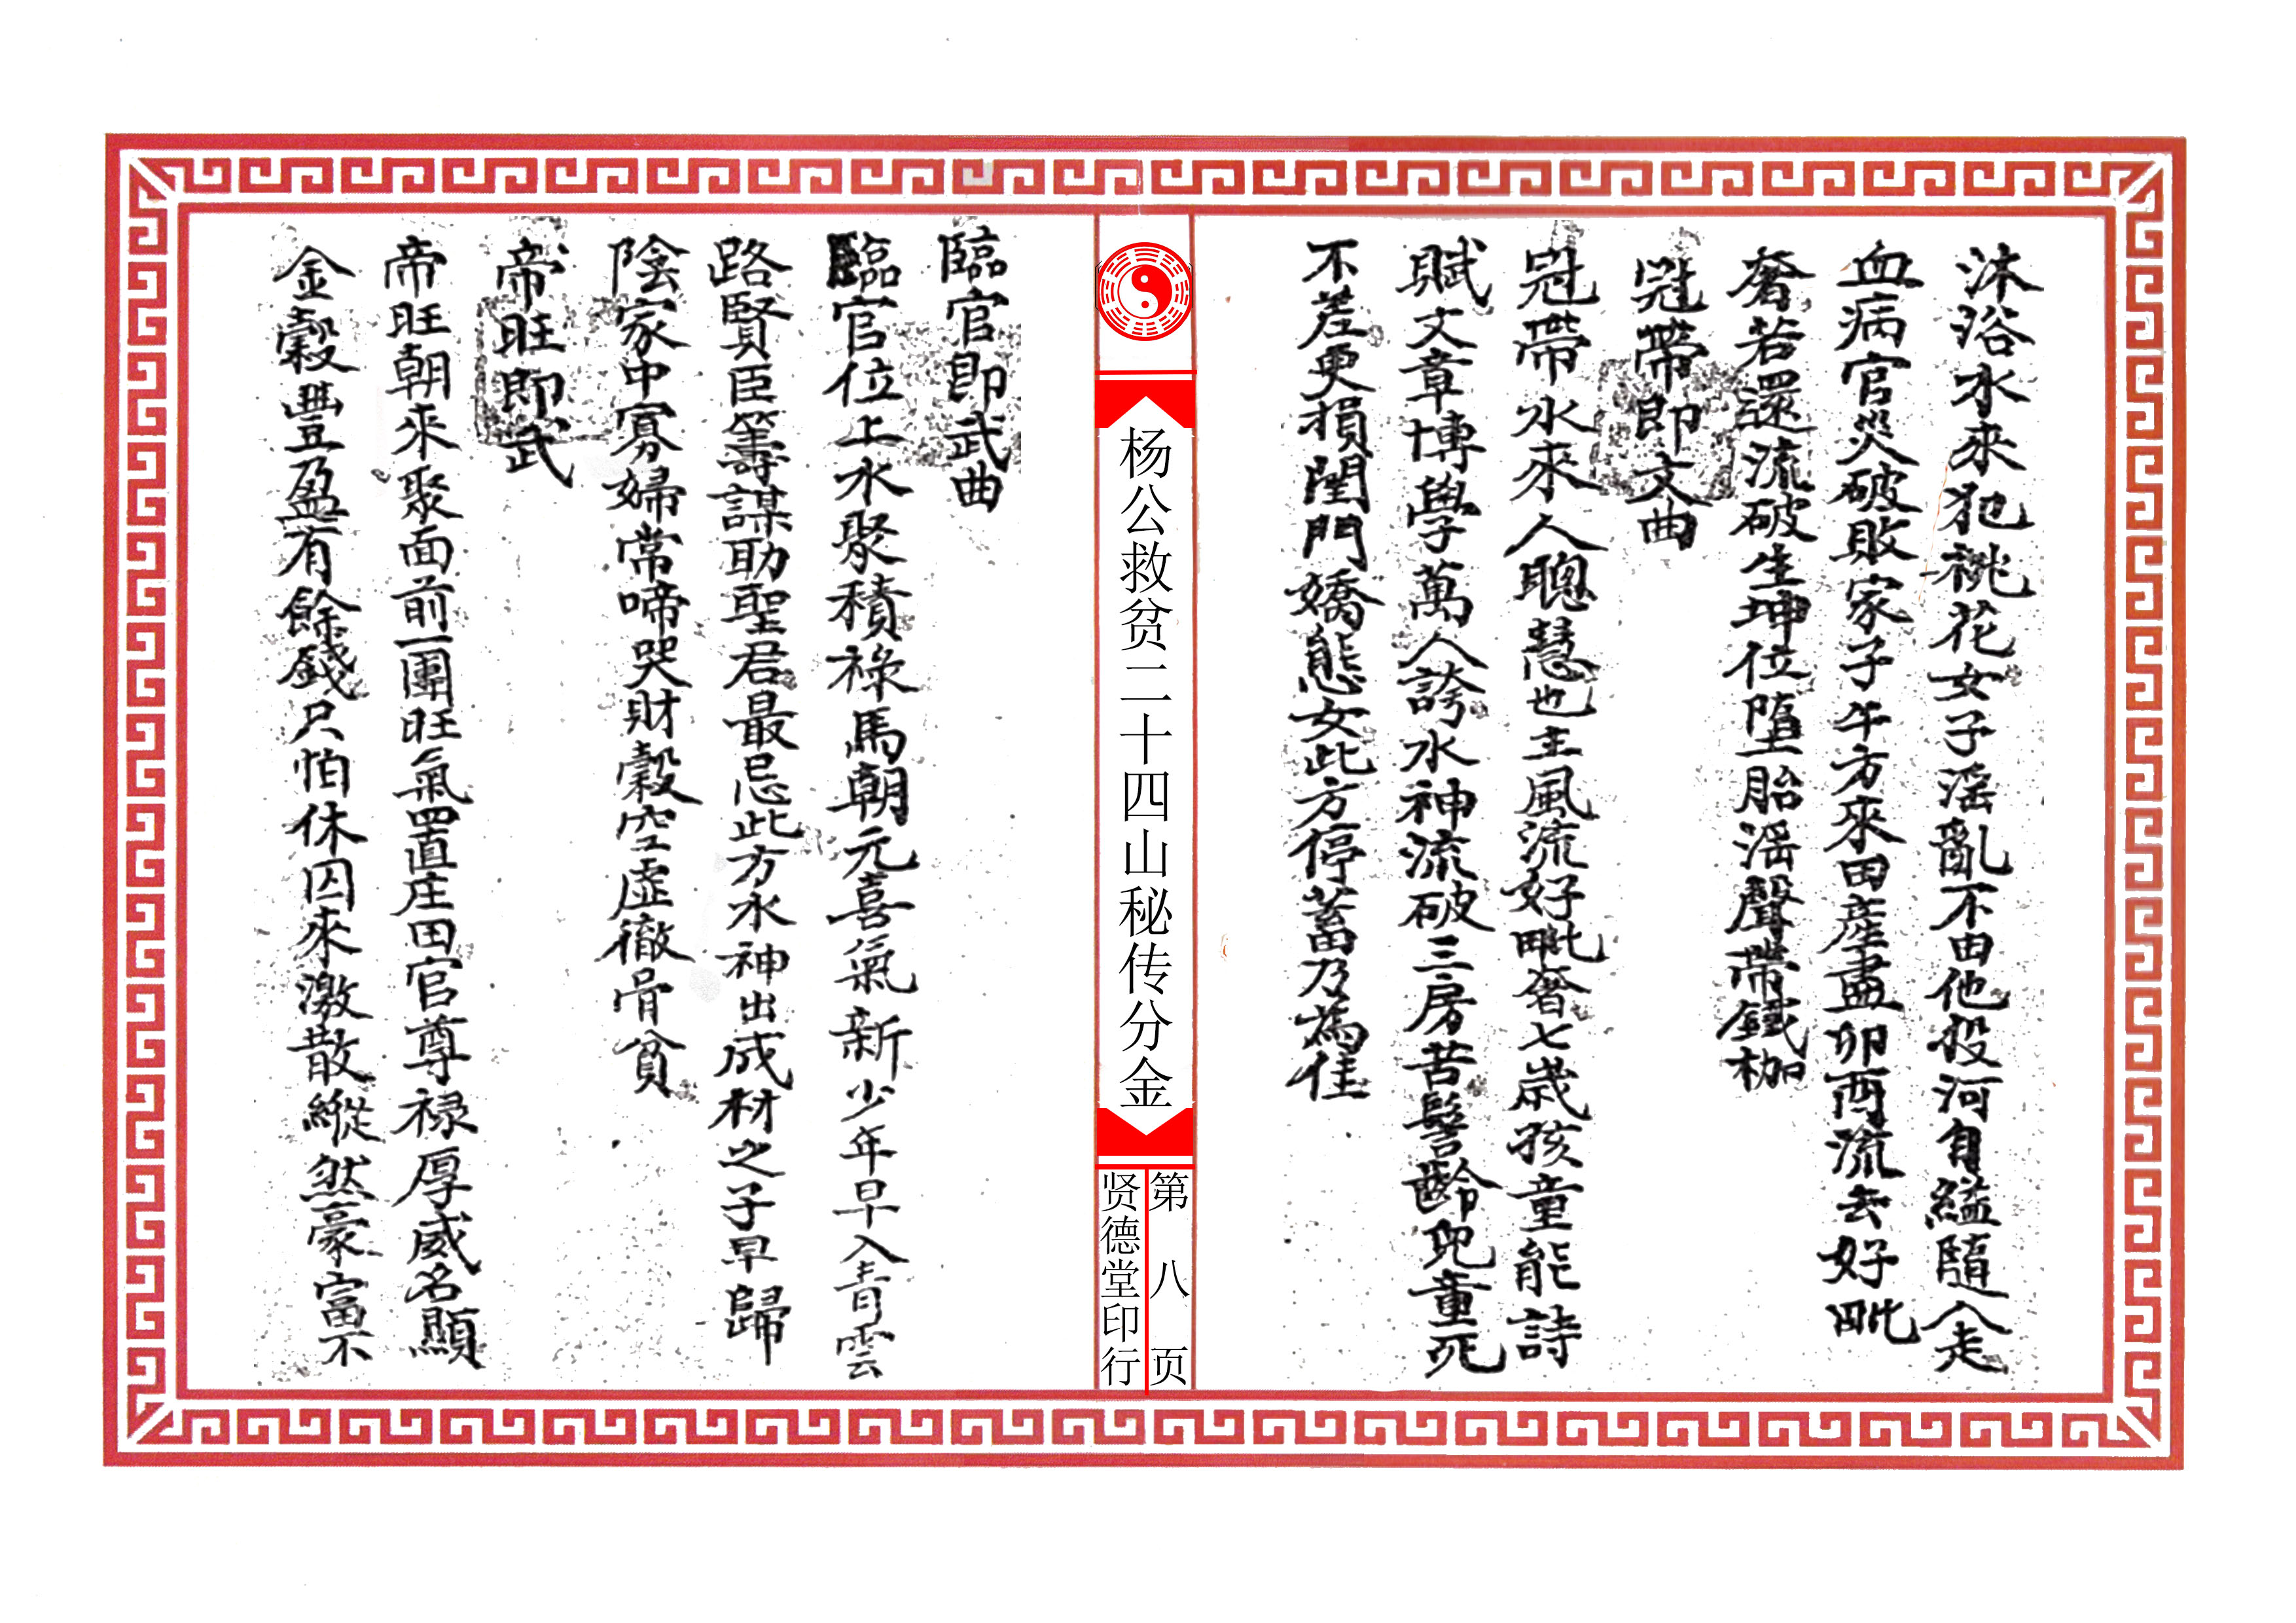 沐浴水來犯祧花女子淫亂不由他投河自縊隨人走
血病官災破敗家子午方來田産盡卯酉流去好毗
奢若還流破生坤位墮胎淫聲帶鐵枷
冠帶即文曲
冠帶水來人聰慧也主風流好毗奢七歲孩童能詩
賦文章博學萬人誇水神流破三房苦髫齡兒童死
不差更損閨門嬌態女此方停蓄乃為佳
杨公救贫二十四山秘传分金
第八页
贤德堂印行
臨官即武曲
臨官位上水聚積祿馬朝元喜氣新少年早入青雲
路賢臣籌謀助聖君最忌此方水神出成材之子早歸
陰家中寡婦常啼哭財穀空虛徹骨貧
帝旺即武
帝旺朝來聚面前一團旺氣置庄田官尊禄厚威名顯
金穀豐盈有餘錢只怕休囚來激散縱然豪富不